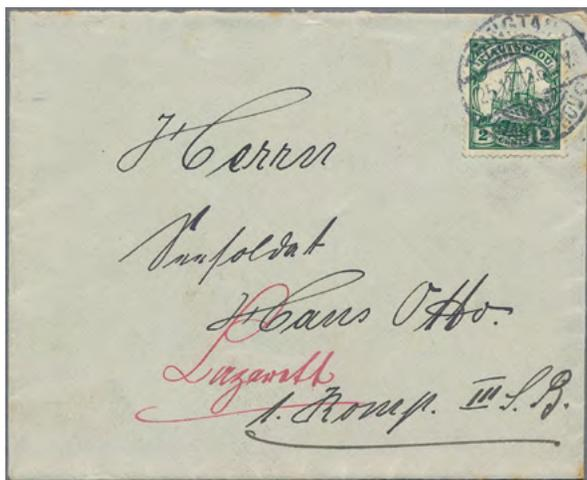 TSINGTAU
KIAUTSCHOU
2 CENTS 2
Herrn
Seesoldat
Hans Otto.
Lazarett
1. Komp. III S. B.